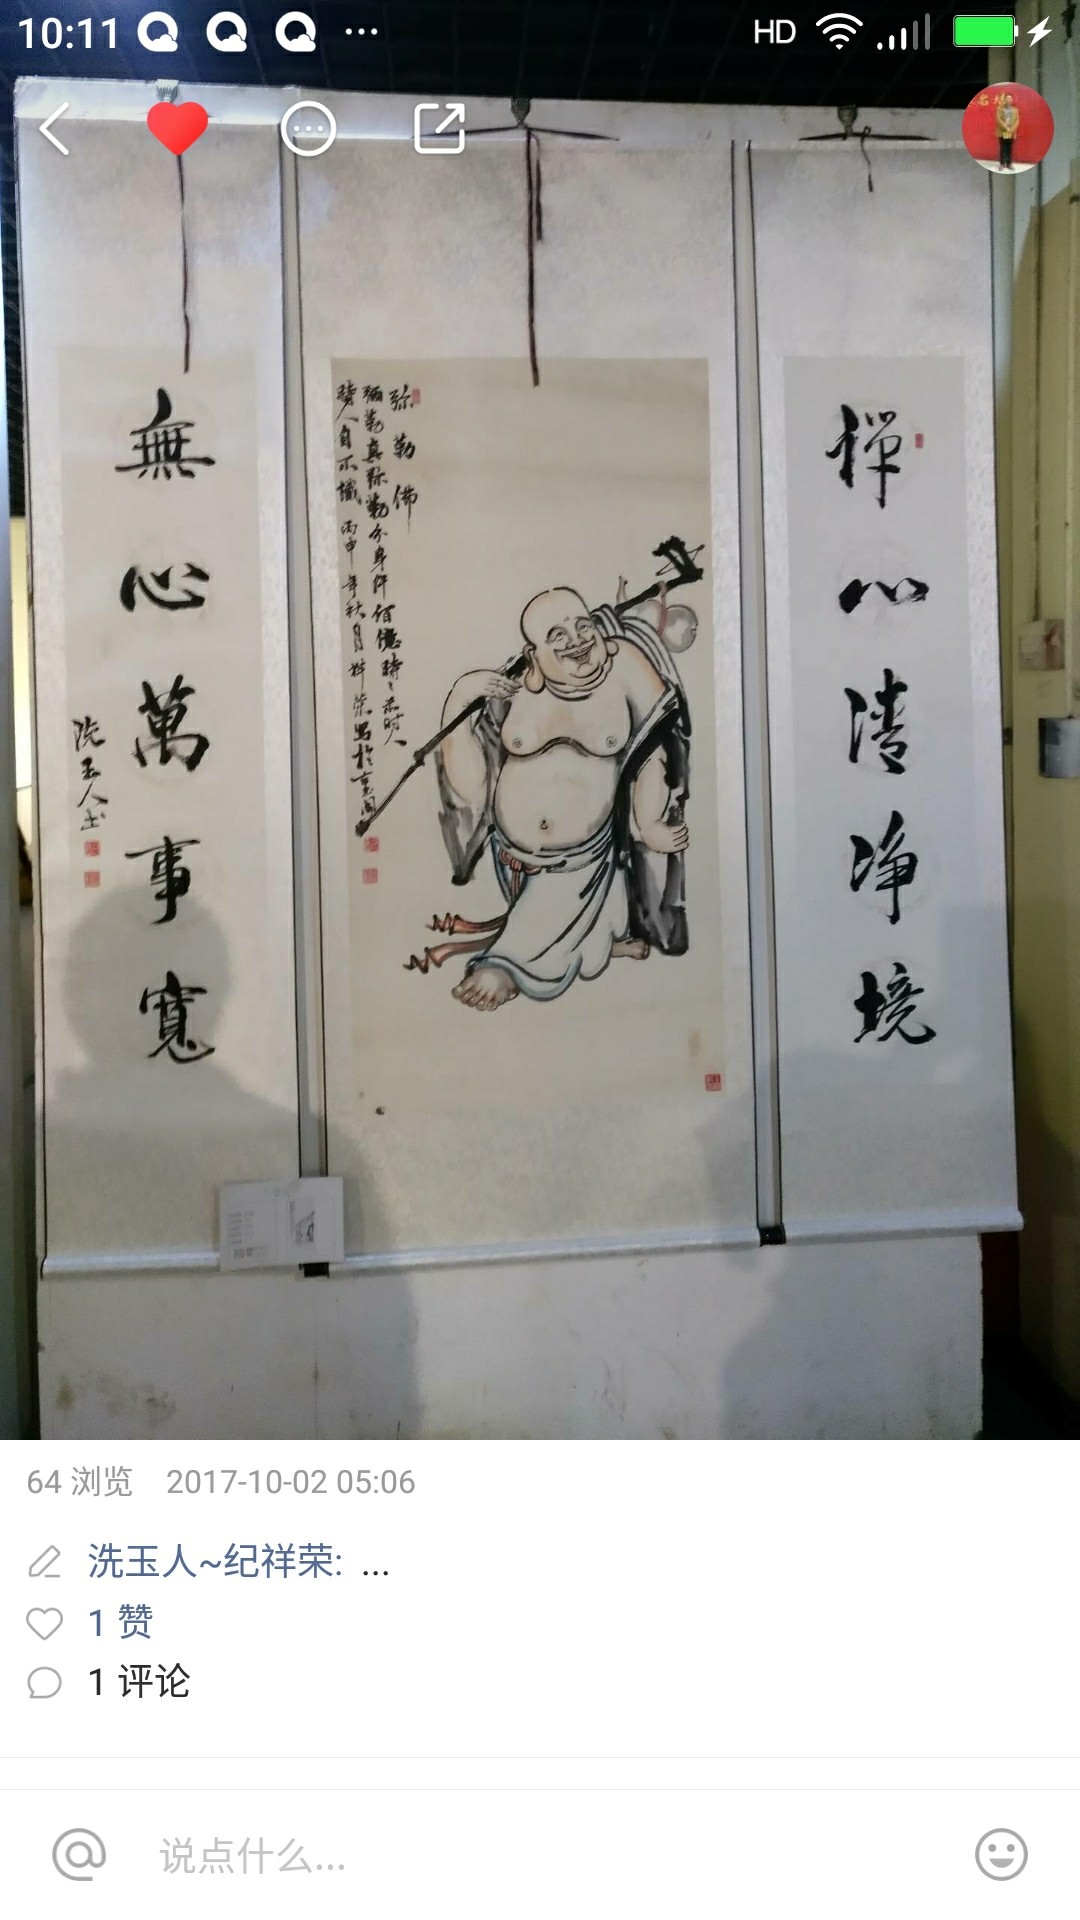 10:11
HD
禅心清净境
無心萬事寬
洗玉人书
弥勒佛
弥勒真弥勒
分身千百億
時時示時人
時人自不識
丙申年秋月祥荣写於京閣
64 浏览 2017-10-02 05:06
洗玉人~纪祥荣: ...
1 赞
1 评论
说点什么...